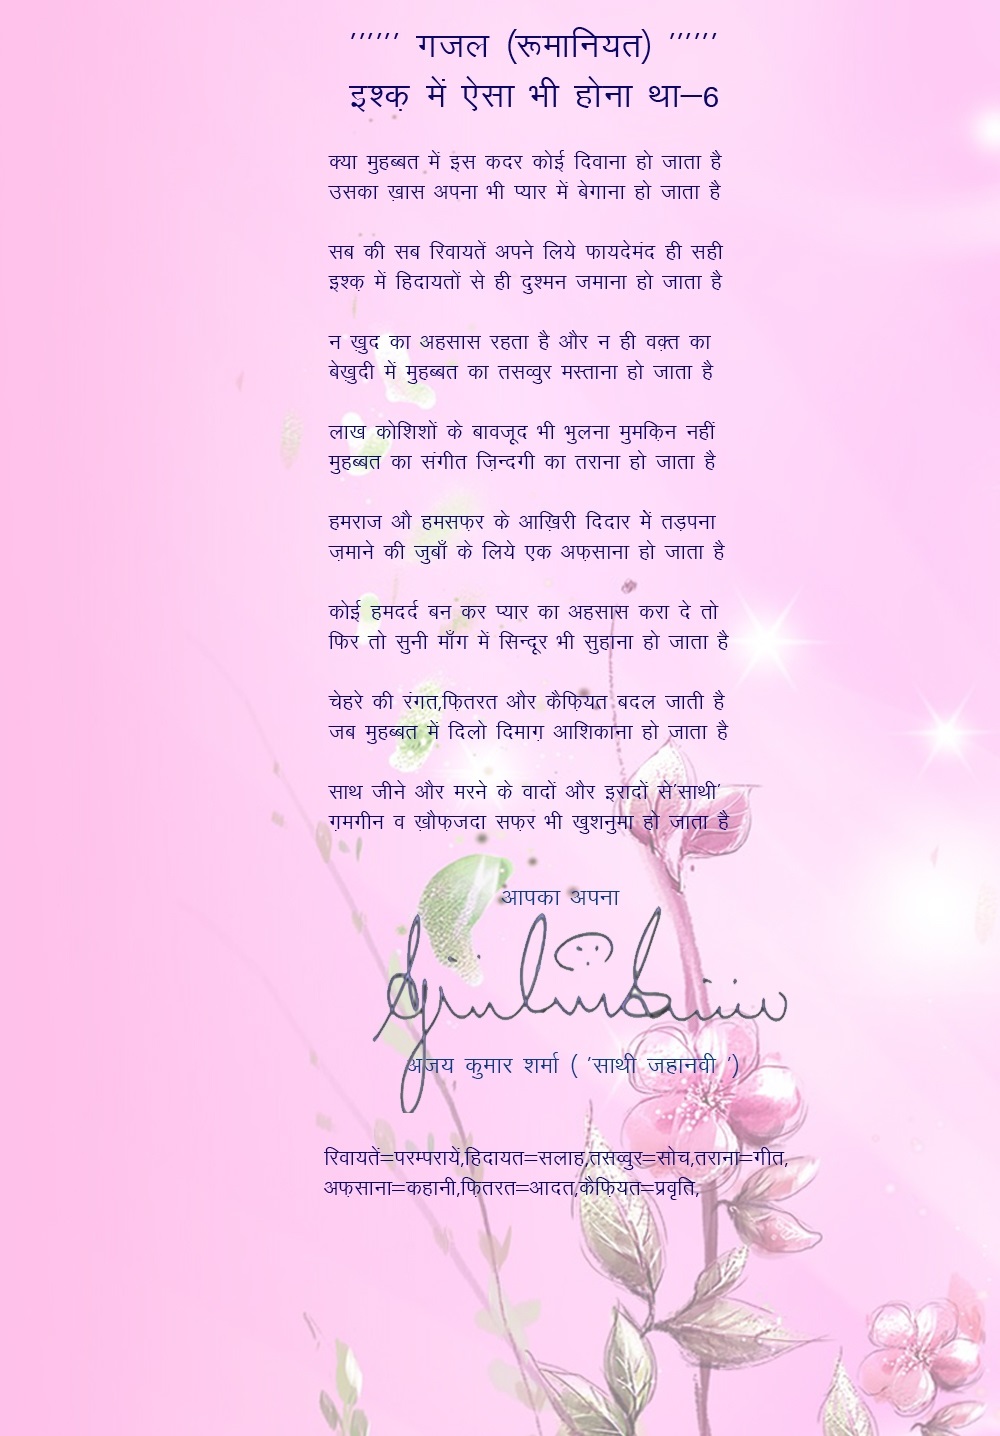 '''''' गजल (रूमानियत) ''''''
इश्क़ में ऐसा भी होना था–6
क्या मुहब्बत में इस कदर कोई दिवाना हो जाता है
उसका ख़ास अपना भी प्यार में बेगाना हो जाता है
सब की सब रिवायतें अपने लिये फायदेमंद ही सही
इश्क़ में हिदायतों से ही दुश्मन जमाना हो जाता है
न ख़ुद का अहसास रहता है और न ही वक़्त का
बेख़ुदी में मुहब्बत का तसव्वुर मस्ताना हो जाता है
लाख कोशिशों के बावजूद भी भुलना मुमकि़न नहीं
मुहब्बत का संगीत ज़िन्दगी का तराना हो जाता है
हमराज औ हमसफ़र के आख़िरी दिदार में तड़पना
ज़माने की जुबाँ के लिये एक अफ़साना हो जाता है
कोई हमदर्द बन कर प्यार का अहसास करा दे तो
फिर तो सुनी माँग में सिन्दूर भी सुहाना हो जाता है
चेहरे की रंगत,फ़ितरत और कैफ़ियत बदल जाती है
जब मुहब्बत में दिलो दिमाग़ आशिकाना हो जाता है
साथ जीने और मरने के वादों और इरादों से'साथी'
ग़मगीन व ख़ौफ़जदा सफ़र भी खुशनुमा हो जाता है
आपका अपना
अजय कुमार शर्मा ( 'साथी जहानवी ')
रिवायतें=परम्परायें,हिदायत=सलाह,तसव्वुर=सोच,तराना=गीत,
अफ़साना=कहानी,फ़ितरत=आदत,कैफ़ियत=प्रवृति,